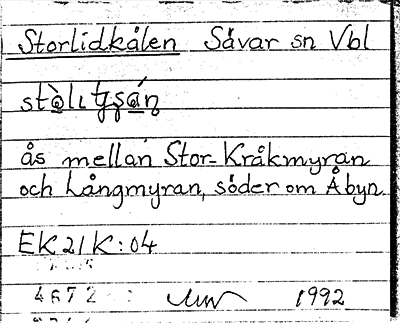 Storlidkålen Sävar sn Vbl
ås mellan Stor-Kråkmyran
och Långmyran, söder om Åbyn.
EK 21K:04
4672
1992